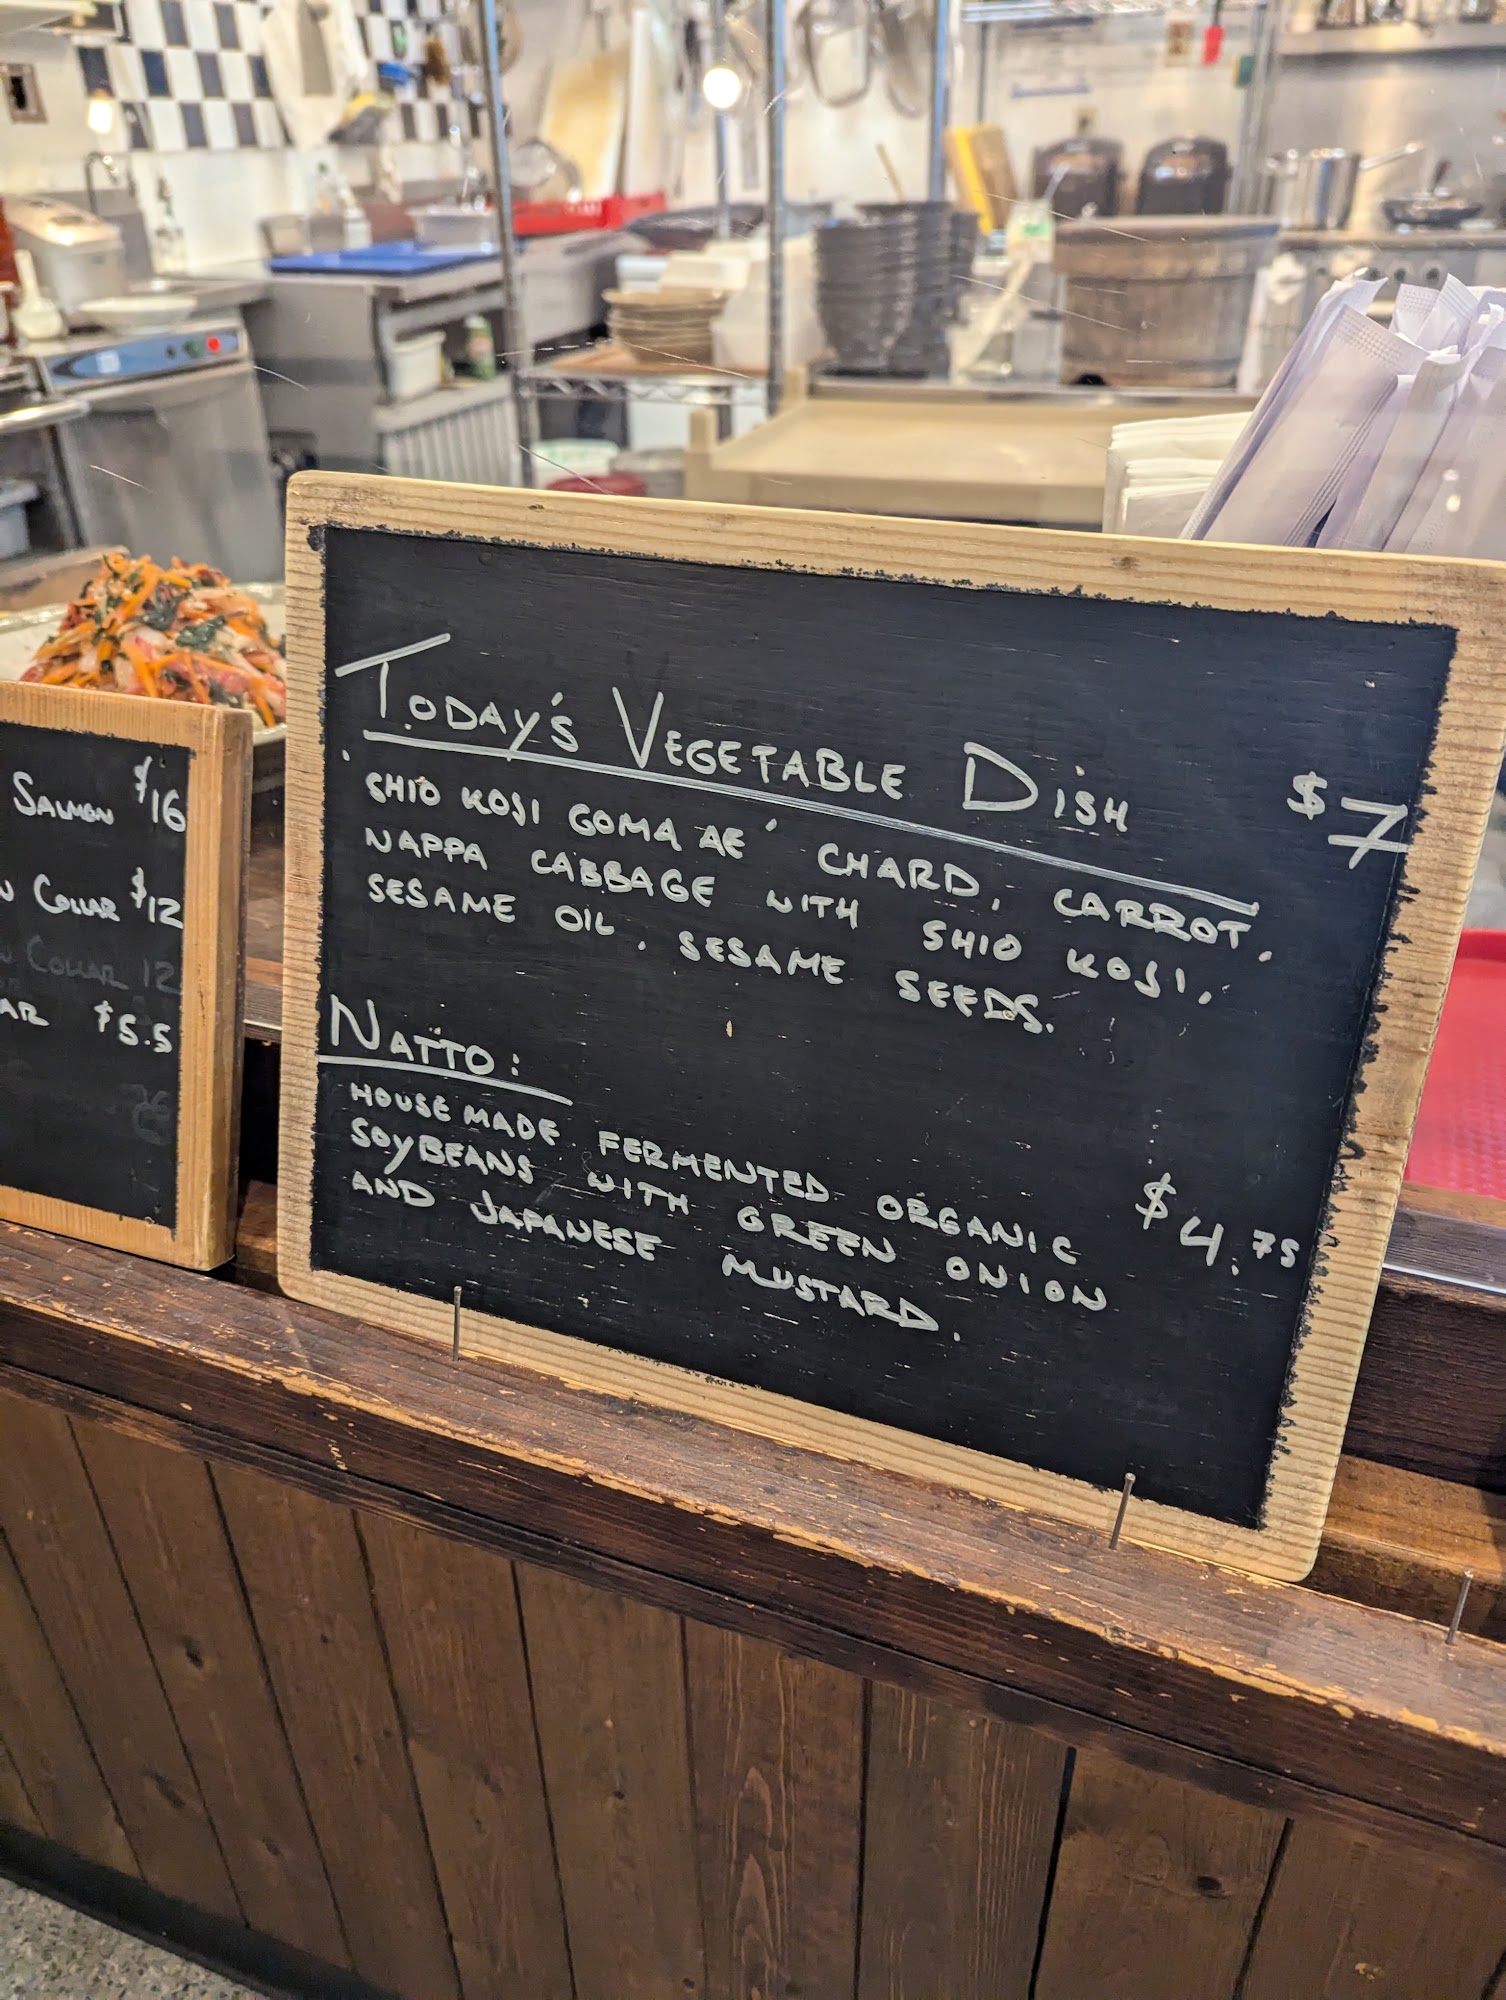 Salmon $16
Collar $12
Collar 12
$5.5
Today's Vegetable Dish $7
Shio Koji Goma Ae' Chard, Carrot,
Nappa Cabbage with Shio Koji,
Sesame Oil, Sesame Seeds.
Natto:
House made fermented organic $4.75
soybeans with green onion
and Japanese mustard.